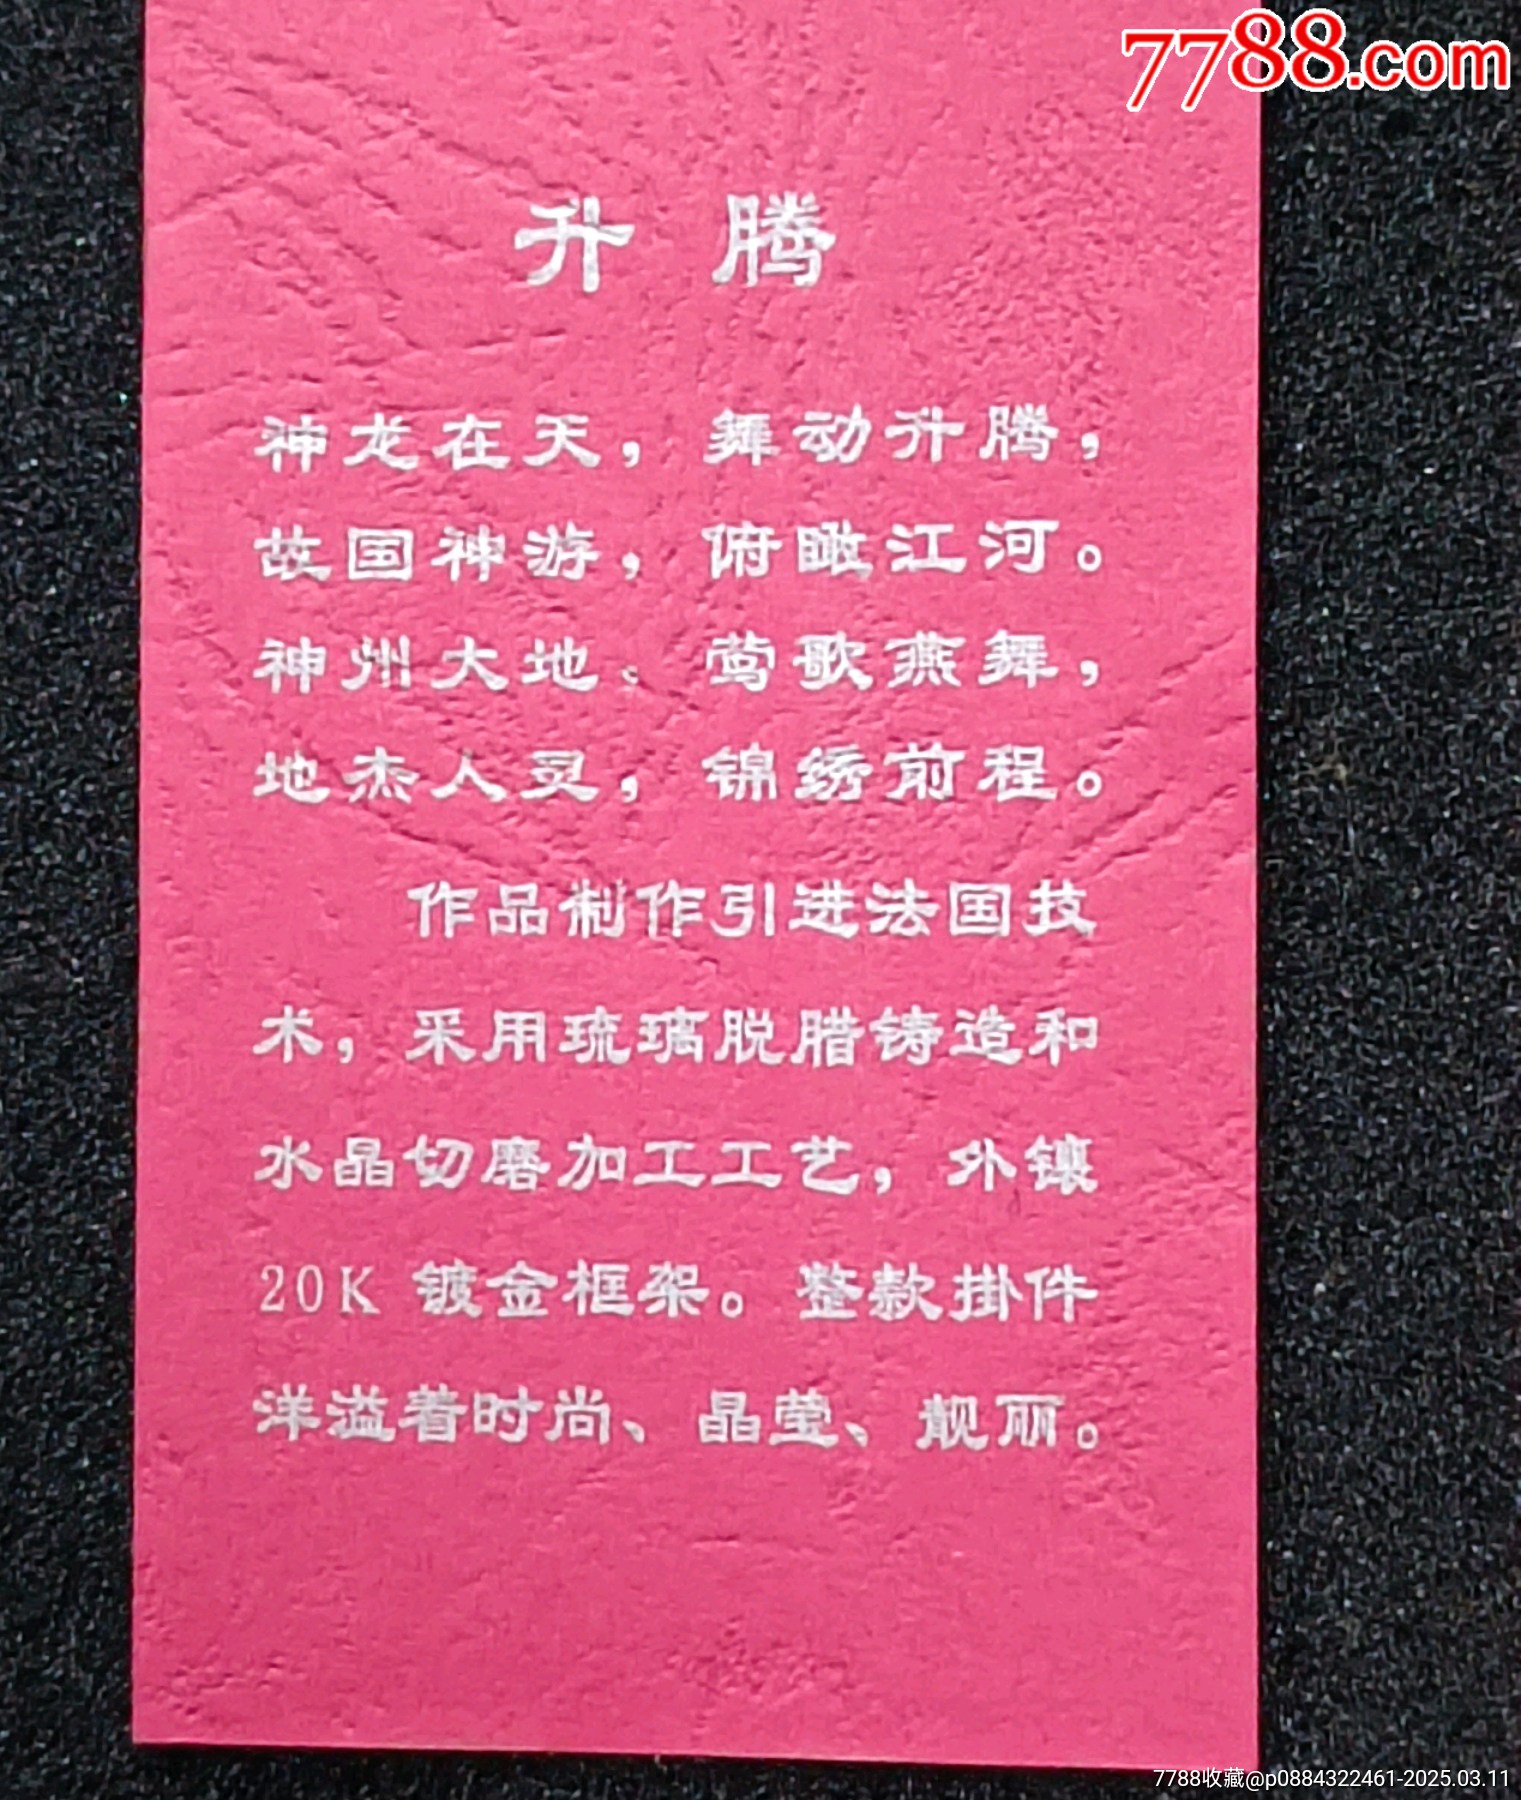 7788.com
升 腾
神龙在天，舞动升腾，
故国神游，俯瞰江河。
神州大地、莺歌燕舞，
地杰人灵，锦绣前程。
作品制作引进法国技
术，采用琉璃脱腊铸造和
水晶切磨加工工艺，外镶
20K 镀金框架。整款掛件
洋溢着时尚、晶莹、靓丽。
7788收藏@p0884322461-2025.03.11